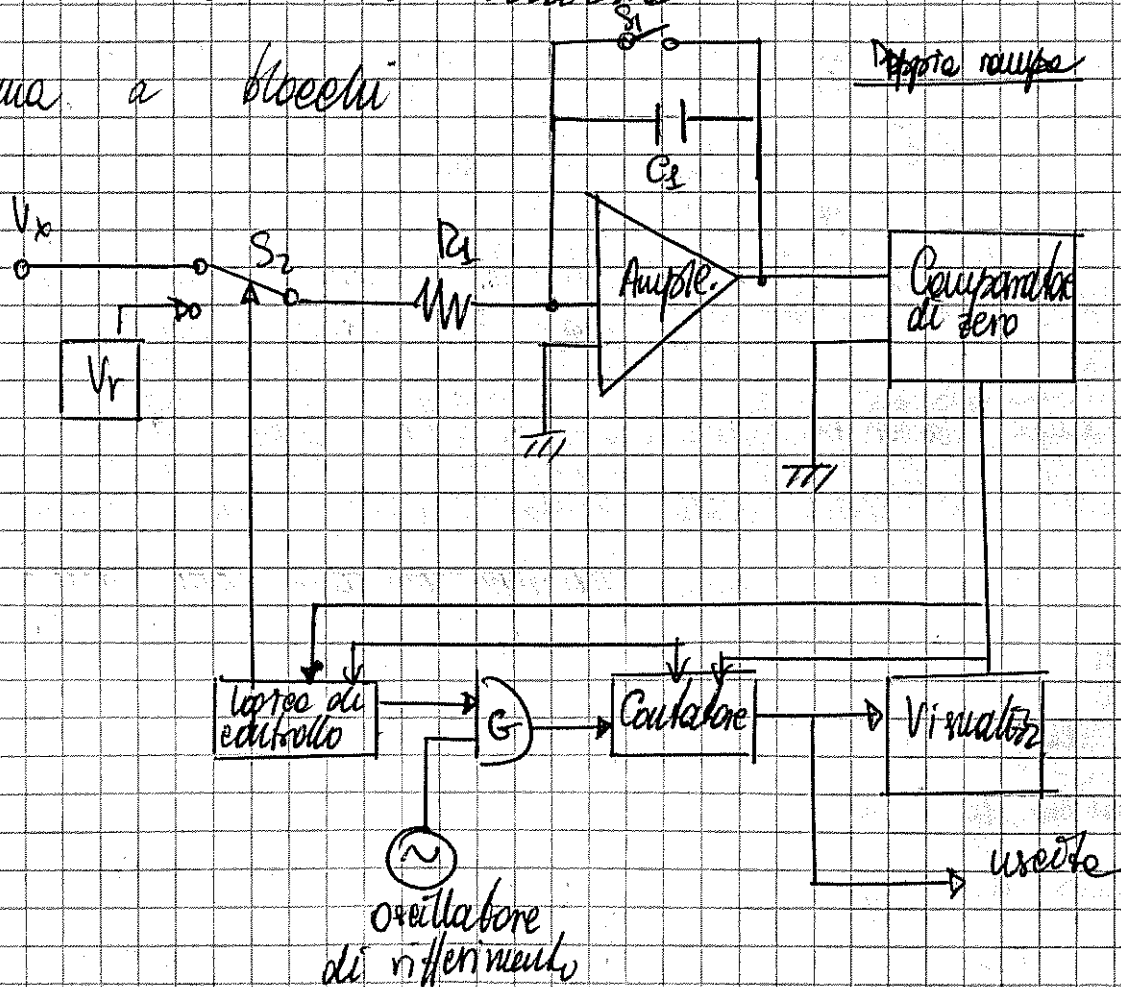 S1
Doppia rampa
a blocchi
C1
Vx
S2
R1
Ample.
Comparatore
di zero
Vr
Logica di
controllo
G
Contatore
Visualizz
uscita
oscillatore
di rifferimento